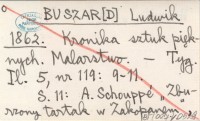 BUSZAR[D] Ludwik
1862. Kronika sztuk pięk-
nych. Malarstwo. - Tyg.
Il. 5, nr 119: 9-11.
S. 11: A. Schouppé „Zbu-
rzony tartak w Zakopanem"